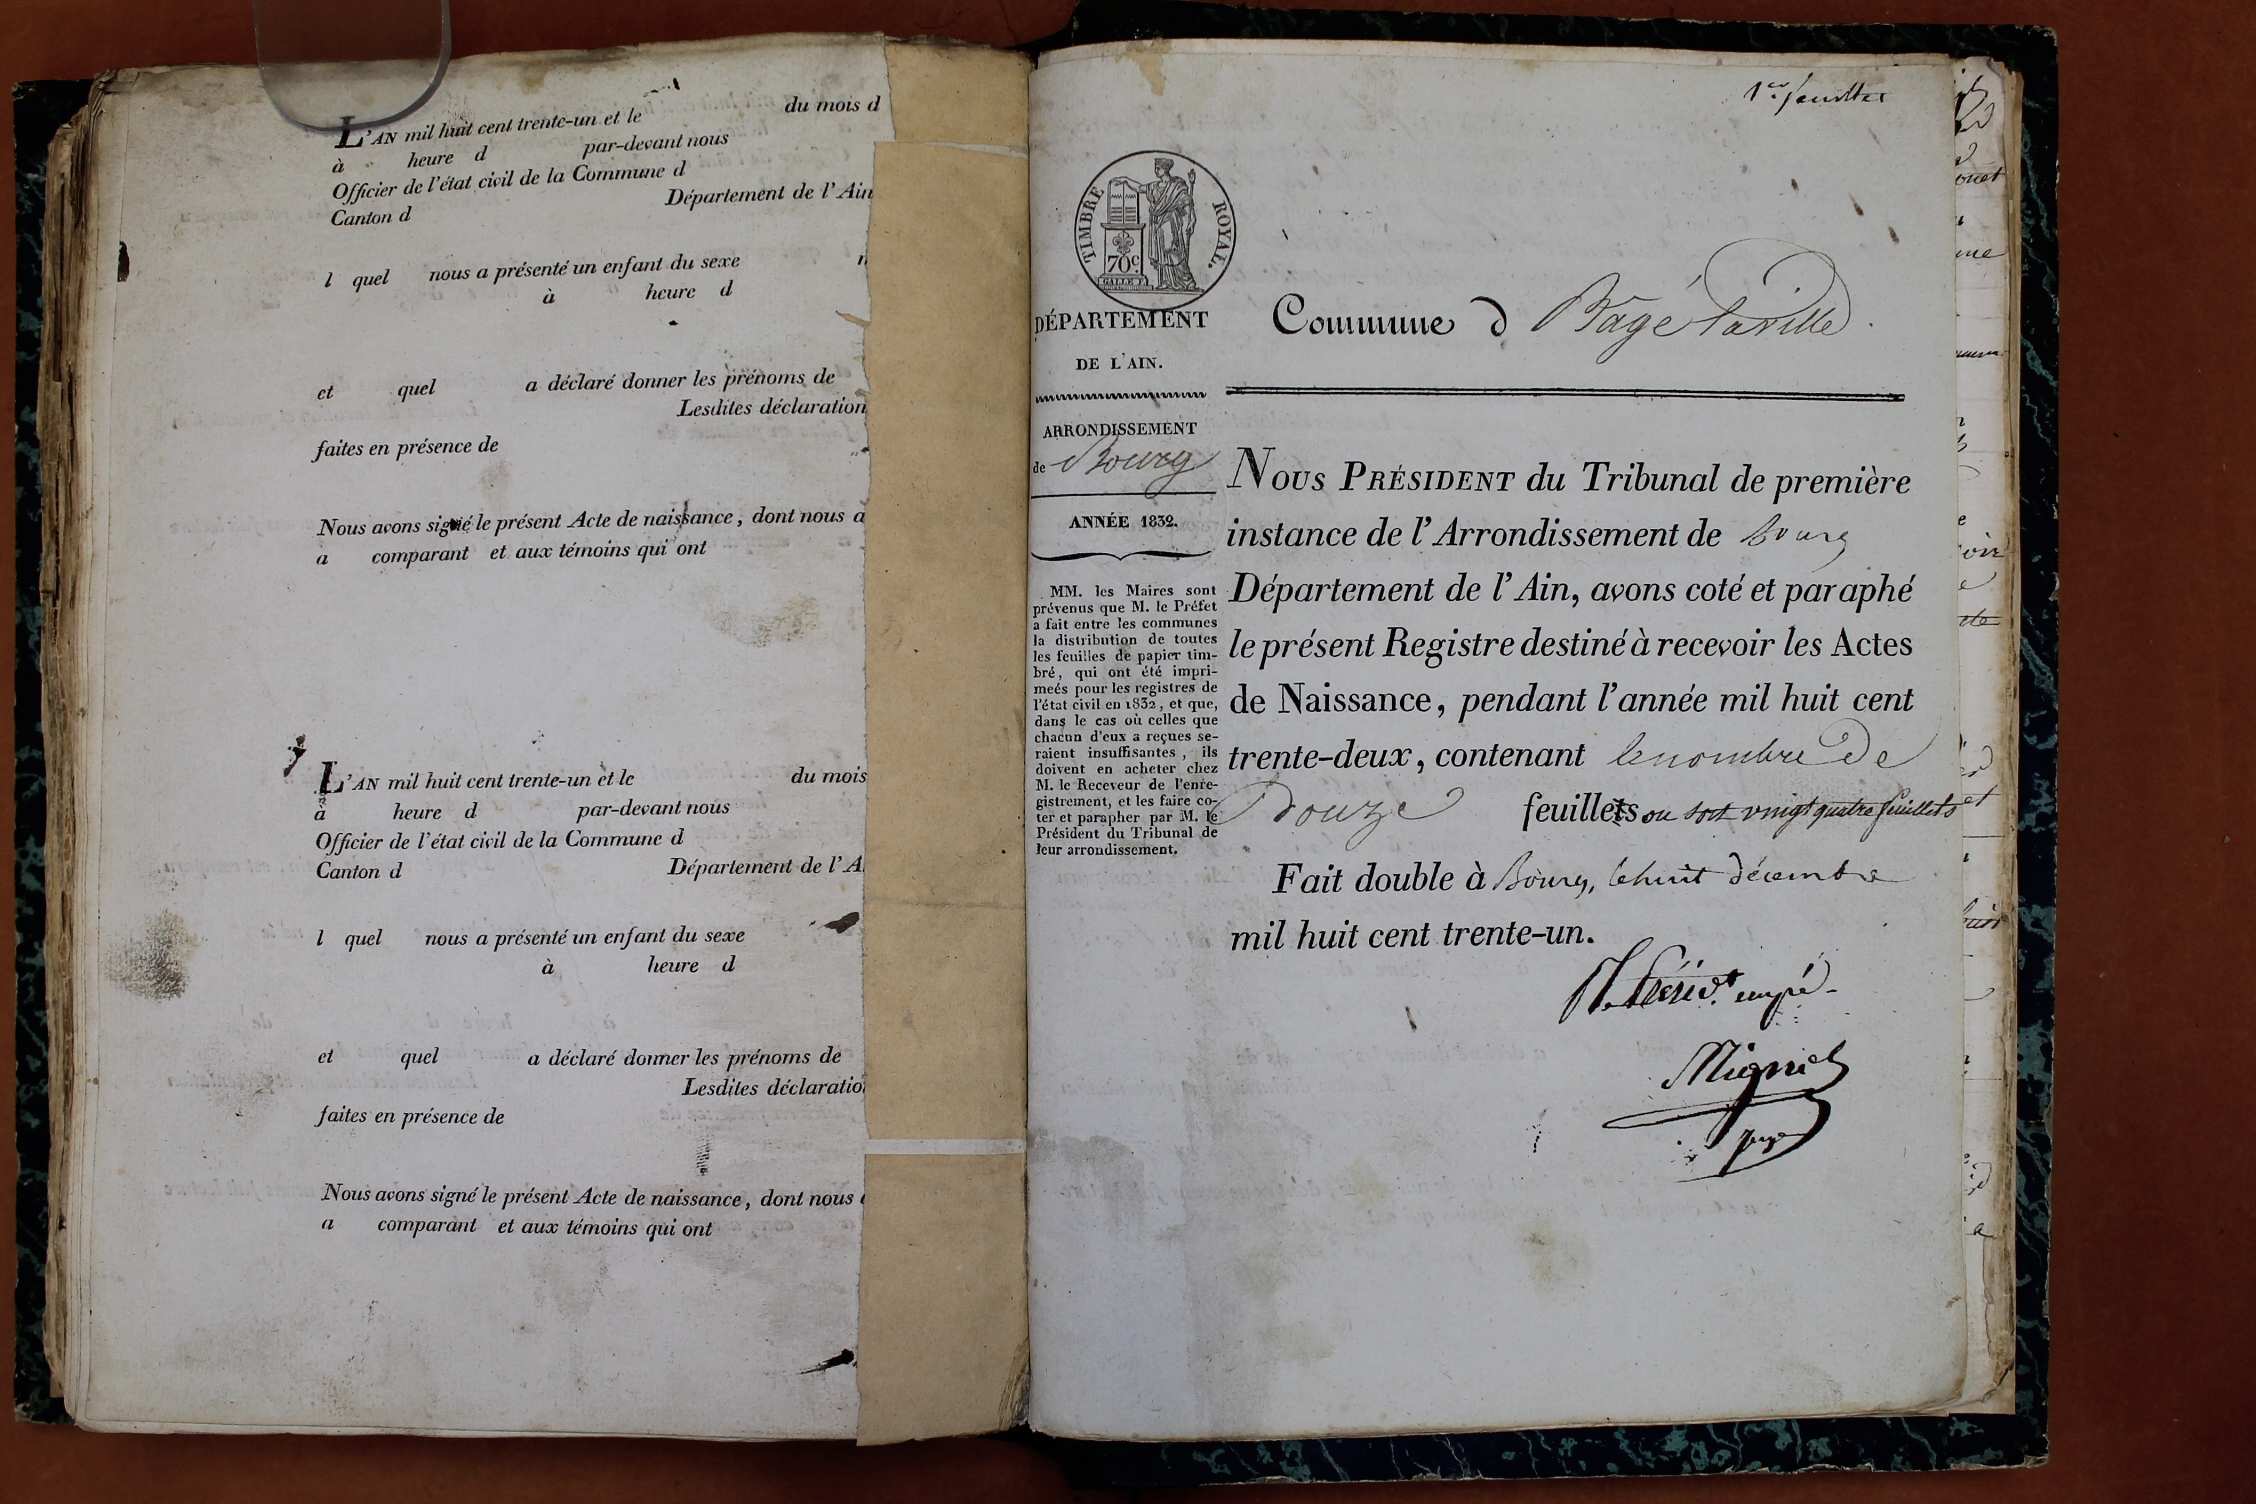 L'AN mil huit cent trente-un et le du mois d
à heure d par-devant nous
Officier de l'état civil de la Commune d
Canton d Département de l'Ain
l quel nous a présenté un enfant du sexe n
à heure d
et quel a déclaré donner les prénoms de
Lesdites déclaration
faites en présence de
Nous avons signé le présent Acte de naissance, dont nous a
a comparant et aux témoins qui ont
L'AN mil huit cent trente-un et le du mois
à heure d par-devant nous
Officier de l'état civil de la Commune d
Canton d Département de l'A
l quel nous a présenté un enfant du sexe
à heure d
et quel a déclaré donner les prénoms de
Lesdites déclaratio
faites en présence de
Nous avons signé le présent Acte de naissance, dont nous
a comparant et aux témoins qui ont
1er feuillet
TIMBRE ROYAL.
70c.
DÉPARTEMENT
DE L'AIN.
ARRONDISSEMENT
de Bourg
ANNÉE 1832.
MM. les Maires sont
prévenus que M. le Préfet
a fait entre les communes
la distribution de toutes
les feuilles de papier tim-
bré, qui ont été impri-
meés pour les registres de
l'état civil en 1832, et que,
dans le cas où celles que
chacun d'eux a reçues se-
raient insuffisantes, ils
doivent en acheter chez
M. le Receveur de l'enre-
gistrement, et les faire co-
ter et parapher par M. le
Président du Tribunal de
leur arrondissement.
Commune d Bagé la ville
NOUS PRÉSIDENT du Tribunal de première
instance de l'Arrondissement de bourg
Département de l'Ain, avons coté et paraphé
le présent Registre destiné à recevoir les Actes
de Naissance, pendant l'année mil huit cent
trente-deux, contenant le nombre de
douze feuillets ou soit vingt quatre feuillets
Fait double à Bourg, le huit décembre
mil huit cent trente-un.
empé
Mignet
juge